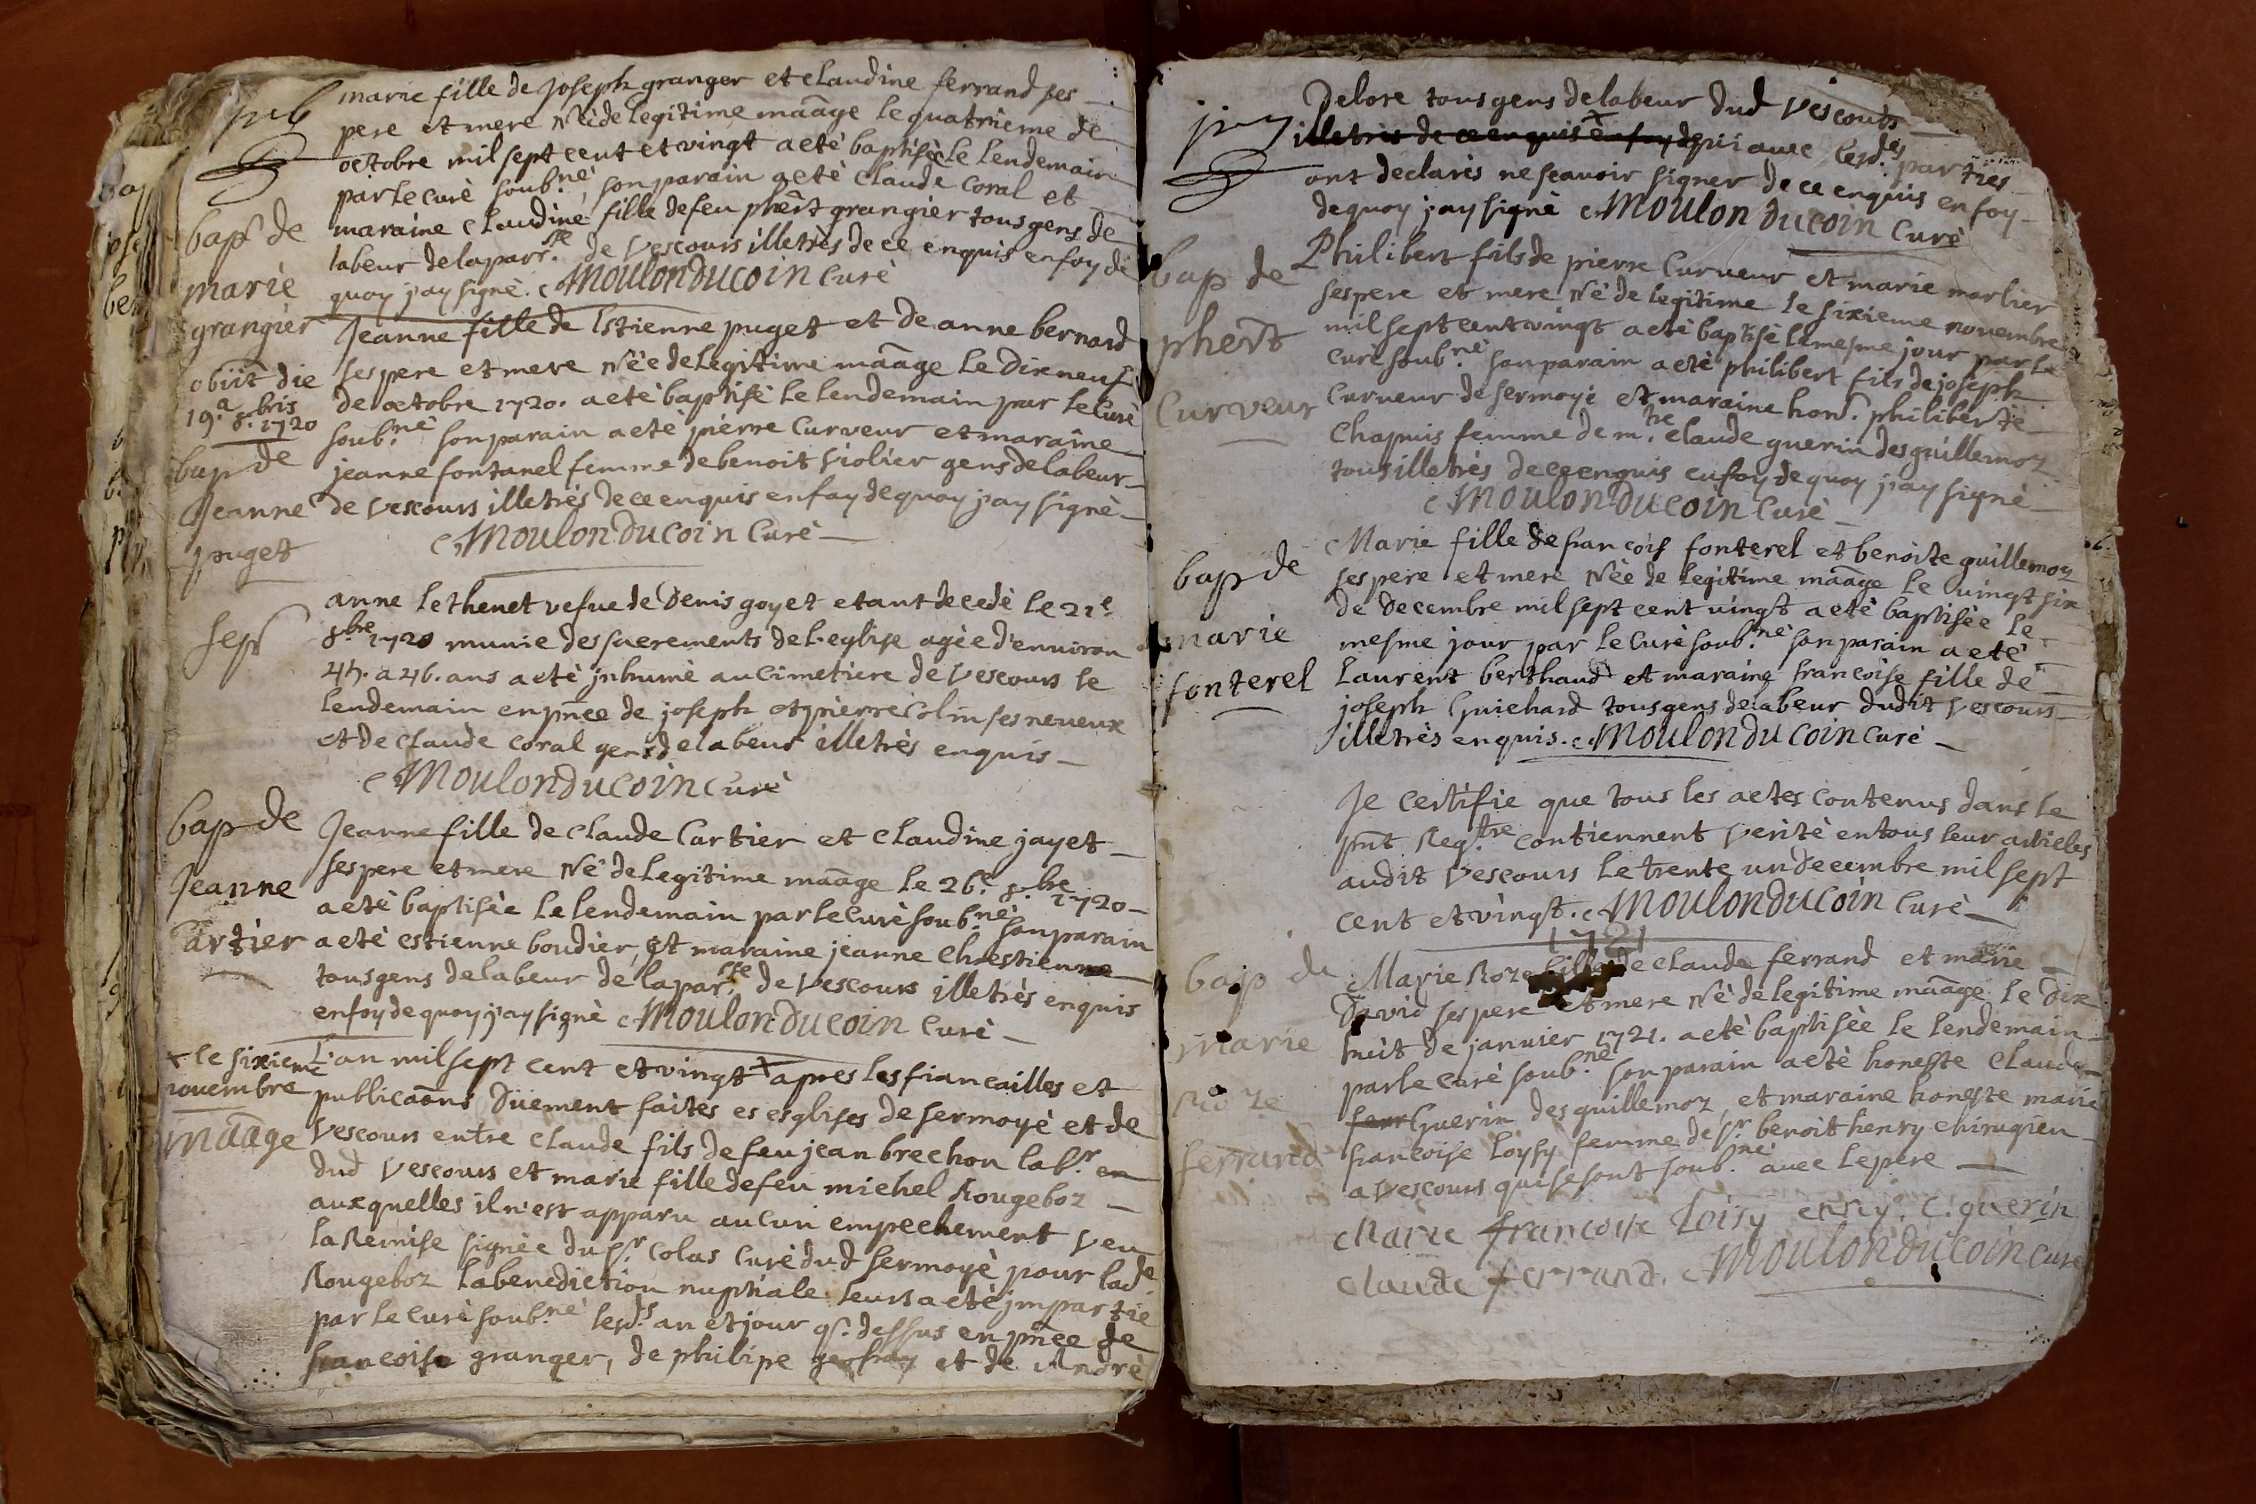 marie fille de Joseph granger et claudine ferrand ses
pere et mere Née de legitime mãage le quatrieme de
octobre mil sept cent et vingt a eté baptisée le lendemain
par le curé soub.né, son parain a eté claude coral et
maraine claudine fille de feu phẽrt grangier tous gens de
labeur de la parr.sse de Vescours illetrés de ce enquis en foy de
quoy j'ay signé. Moulonducoin curé
bap de
marie
grangier
obiit die
19.a 8.bris 1720
Jeanne fille de Estienne puget et de anne bernard
ses pere et mere Née de legitime mãage le Dixneuf
de octobre 1720. a eté baptisé le lendemain par le Curé
soub.né son parain a eté pierre Curveur et maraine
jeanne fontanel femme de benoit violier gens de labeur
de Vescours illetrés de ce enquis en foy de quoy j'ay signé
Moulonducoin Curé
bap de
Jeanne
puget
sep
anne lethenet vefue de Denis goyet etant decedé le 21e
8bre 1720 munie des sacrements de l'eglise agée d'environ
45. a 46. ans a eté jnhumé au cimetiere de Vescours le
lendemain en pñce de joseph et pierre Colin ses neveux
et de claude coral gens de labeur illetrés enquis
Moulonducoin Curé
bap de
Jeanne
Cartier
Jeanne fille de claude Cartier et claudine jayet
ses pere et mere Né de legitime mãage le 26e 8.bre 1720
a eté baptisée le lendemain par le Curé soub.né son parain
a eté estienne boudier, et maraine jeanne chrestienne
tous gens de labeur de la par.sse de Vescours illetrés enquis
en foy de quoy j'ay signé Moulonducoin Curé
x le sixieme
novembre
mãage
L'an mil sept cent et vingt x apres les fiancailles et
publicãons Düement faites es esglises de sermoyé et de
Vescours entre claude fils de feu jean brechon lab.r en
dud Vescours et marie fille de feu michel Rougeboz
auxquelles il n'est apparu aucun empechement Veu
la Remise signée du Sr colas Curé dud sermoyé pour lade
Rougeboz la benediction nuptiale leurs a eté jmpartie
par le Curé soub.né lesd.s an et jour q.s dessus en pñce de
francoise granger, de philipe et de André
Delore tous gens de labeur dud Vescours
illetrés de ce enquis en foy de qui avec lesd.es parties
ont declarés ne scavoir signer de ce enquis en foy
de quoy j'ay signé Moulonducoin Curé
bap de
phert
Curveur
Philibert fils de pierre Curveur et marie marlier
ses pere et mere Né de legitime le sixieme novembre
mil sept cent vingt a eté baptisé le mesme jour par le
Curé soub.né son parain a eté philibert fils de joseph
Curveur de sermoyé et maraine hon.e philiberte
Chapuis femme de m.tre claude guerin desguillemoz
tous illetrés de ce enquis en foy de quoy j'ay signé
Moulonducoin Curé
bap de
marie
fonterel
Marie fille de francois fonterel et benoite guillemoz
ses pere et mere Née de legitime mãage le vingt six
de decembre mil sept cent vingt a eté baptisée le
mesme jour par le Curé soub.né son parain a eté
Laurent berthaud et maraine francoise fille de
joseph Guichard tous gens de labeur dudit Vescours
illetrés enquis. Moulonducoin Curé
Je certifie que tous les actes contenus dans le
pnt Reg.tre contiennent Verité en tous leur articles
audit Vescours le trente un decembre mil sept
cent et vingt. Moulonducoin Curé
1721
bap de
marie
Roze
ferrand
Marie Roze fille de claude ferrand et marie
David ses pere et mere Né de legitime mãage le Dix
huit de janvier 1721. a eté baptisée le lendemain
par le curé soub.né son parain a eté honeste claude
Guerin des guillemoz, et maraine honeste marie
francoise loysy femme de Sr benoit henry chirugien
a Vescours qui se sont soub.né avec le pere
Marie francoise Loisy enry. c. guerin
claude ferrand. Moulonducoin Curé